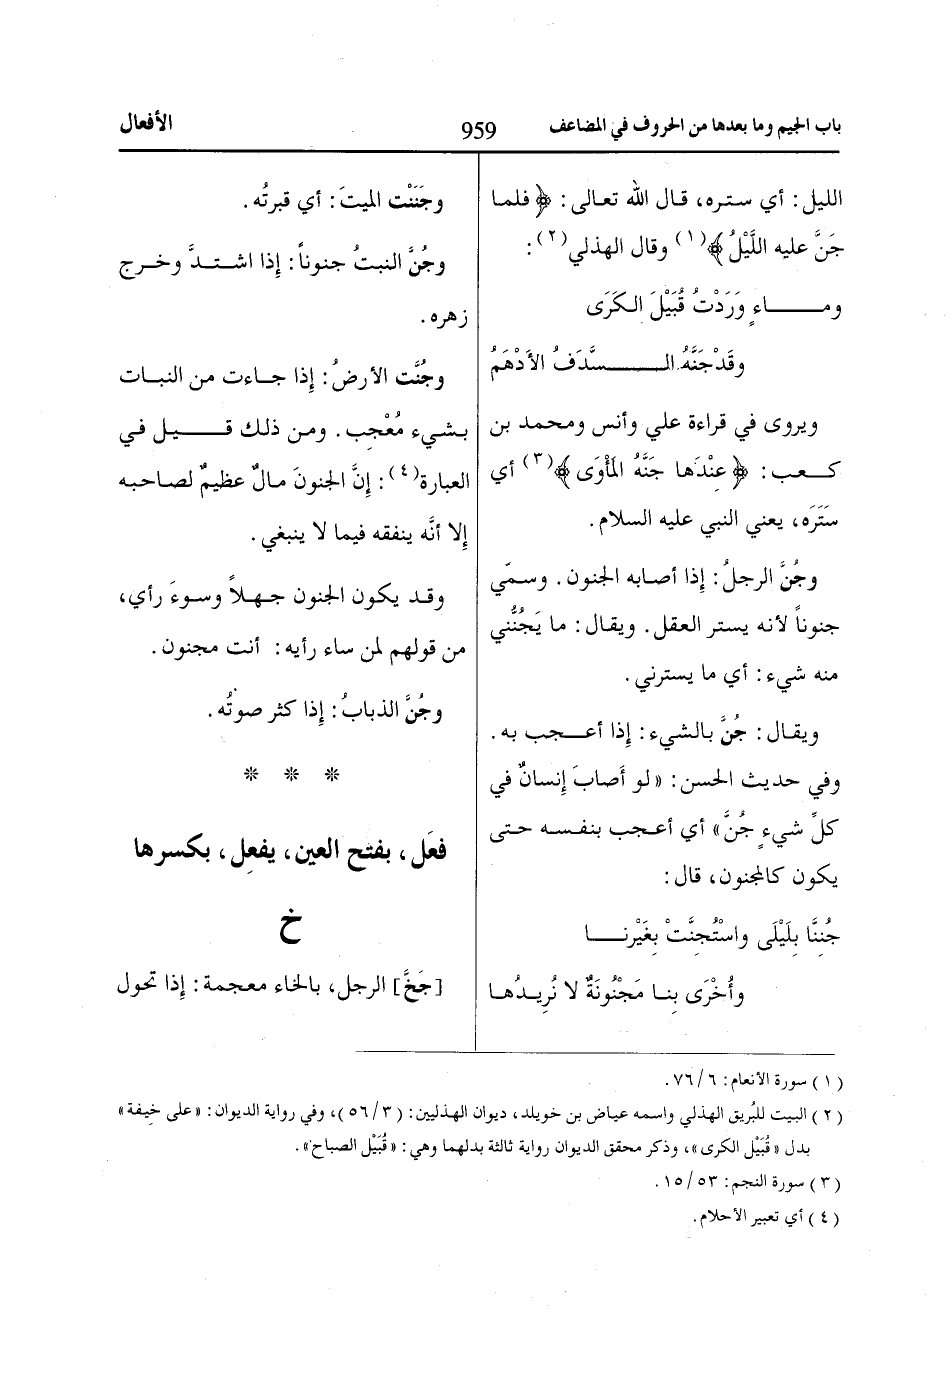 باب الجيم وما بعدها من الحروف في المضاعف
959
الأفعال
الليل: أي ستره، قال الله تعالى: ﴿ فلما
جَنَّ عليه اللَّيْلُ ﴾(١) وقال الهذلي(٢):
ومـــــاءٍ وَرَدْتُ قُبَيْلَ الكَرَى
وقَدْ جَنَّهُ الـــــسَّدَفُ الأَدْهَمُ
ويروى في قراءة علي وأنس ومحمد بن
كعب: ﴿ عِنْدَها جَنَّهُ المَأْوَى ﴾(٣) أي
سَتَرَه، يعني النبي عليه السلام.
وجُنَّ الرجلُ: إذا أصابه الجنون. وسمّي
جنوناً لأنه يستر العقل. ويقال: ما يَجُنُّني
منه شيء: أي ما يسترني.
ويقال: جُنَّ بالشيء: إذا أعجب به.
وفي حديث الحسن: « لو أَصابَ إنسانٌ في
كلِّ شيءٍ جُنَّ » أي أعجب بنفسه حتى
يكون كالمجنون، قال:
جُنِنَّا بِلَيْلَى واسْتُجِنَّتْ بِغَيْرِنـــا
وأُخْرَى بِنا مَجْنُونَةٌ لا نُرِيدُها
وجَنَنْت الميتَ: أي قبرتُه.
وجُنَّ النبتُ جنوناً: إذا اشتدَّ وخرج
زهره.
وجُنَّت الأرضُ: إذا جاءت من النبات
بشيء مُعْجِب. ومن ذلك قيل في
العبارة(٤): إنَّ الجنونَ مالٌ عظيمٌ لصاحبه
إلا أنَّه ينفقه فيما لا ينبغي.
وقد يكون الجنون جهلاً وسوءَ رأي،
من قولهم لمن ساء رأيه: أنت مجنون.
وجُنَّ الذبابُ: إذا كثر صوتُه.
* * *
فعَل، بفتح العين، يفعِل، بكسرها
خ
[جَخَّ] الرجل، بالخاء معجمة: إذا تحول
(١) سورة الأنعام: ٦/ ٧٦.
(٢) البيت للبُريق الهذلي واسمه عياض بن خويلد، ديوان الهذليين: (٣/ ٥٦)، وفي رواية الديوان: «على خيفة»
بدل «قُبَيْل الكرى»، وذكر محقق الديوان رواية ثالثة بدلهما وهي: «قُبَيْل الصباح».
(٣) سورة النجم: ٥٣/ ١٥.
(٤) أي تعبير الأحلام.